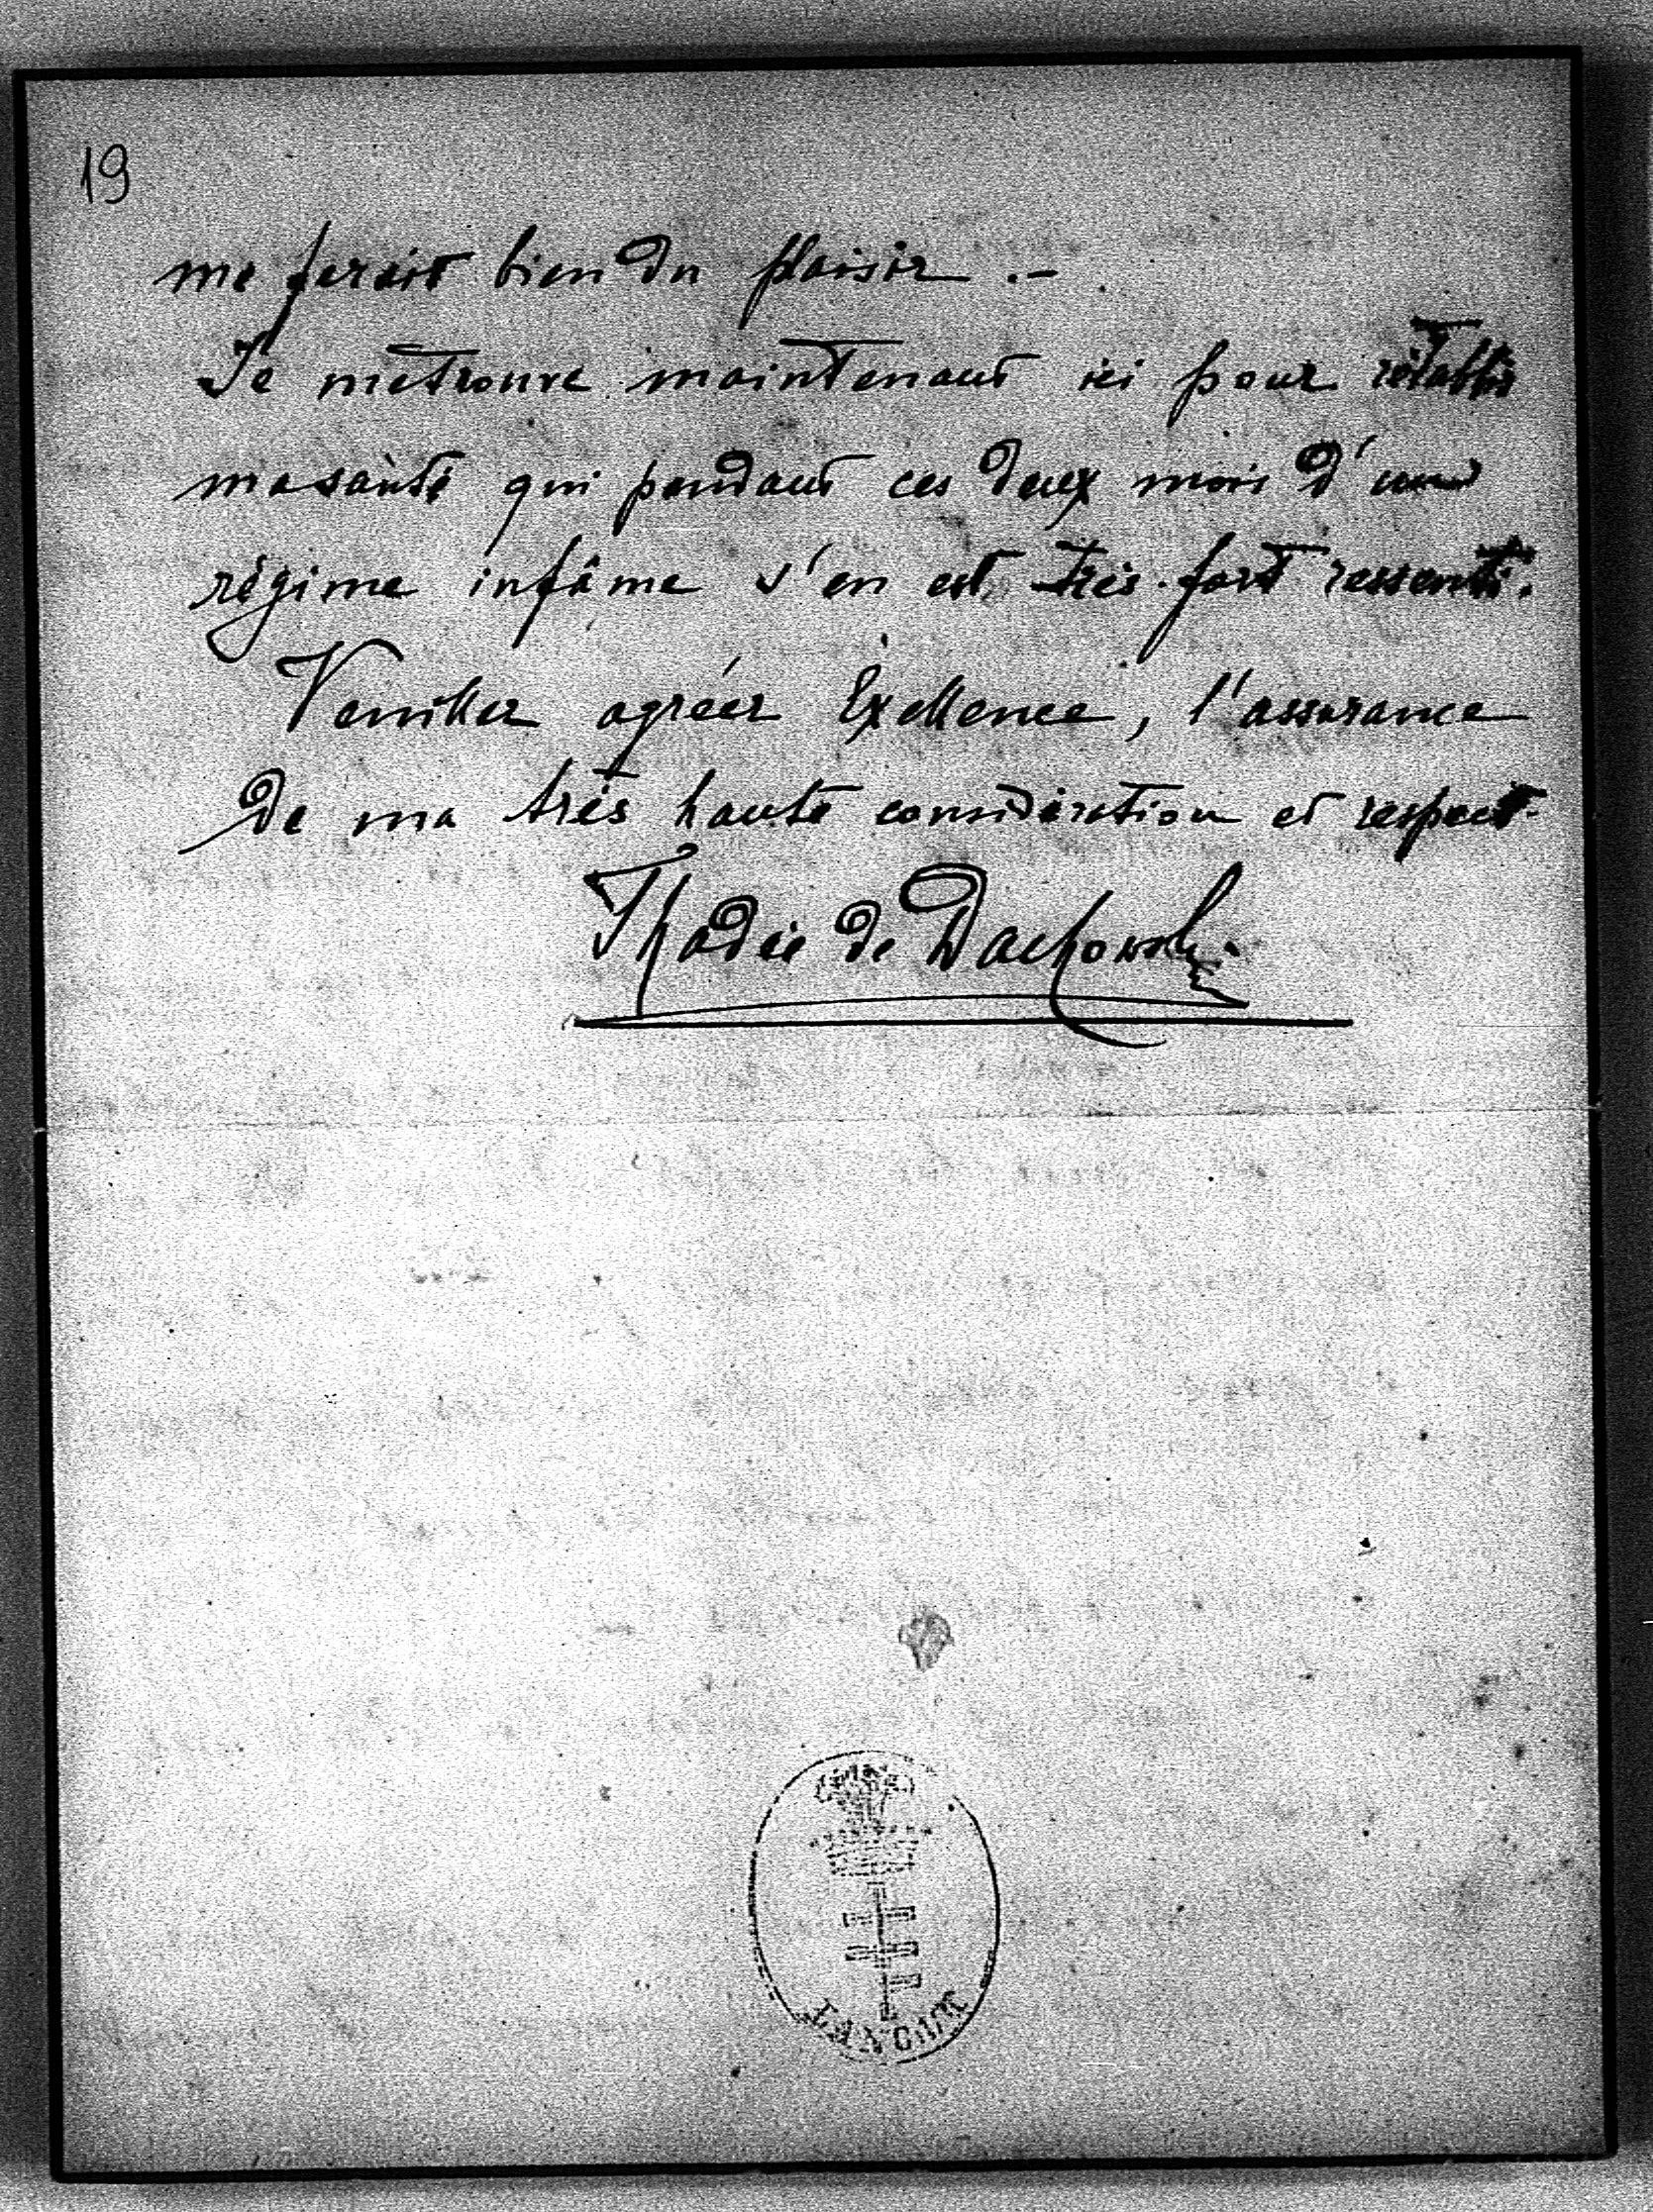 19
me ferait bien du plaisir .-
Je me trouve maintenant ici pour rétablir
ma santé qui pendant ces deux mois d'un
régime infâme s'en est très fort ressenti.
Veuillez agréer Exellence, l'assurance
de ma très haute considération et respect.
Thadée de Dachowski
ŁAŃCUT